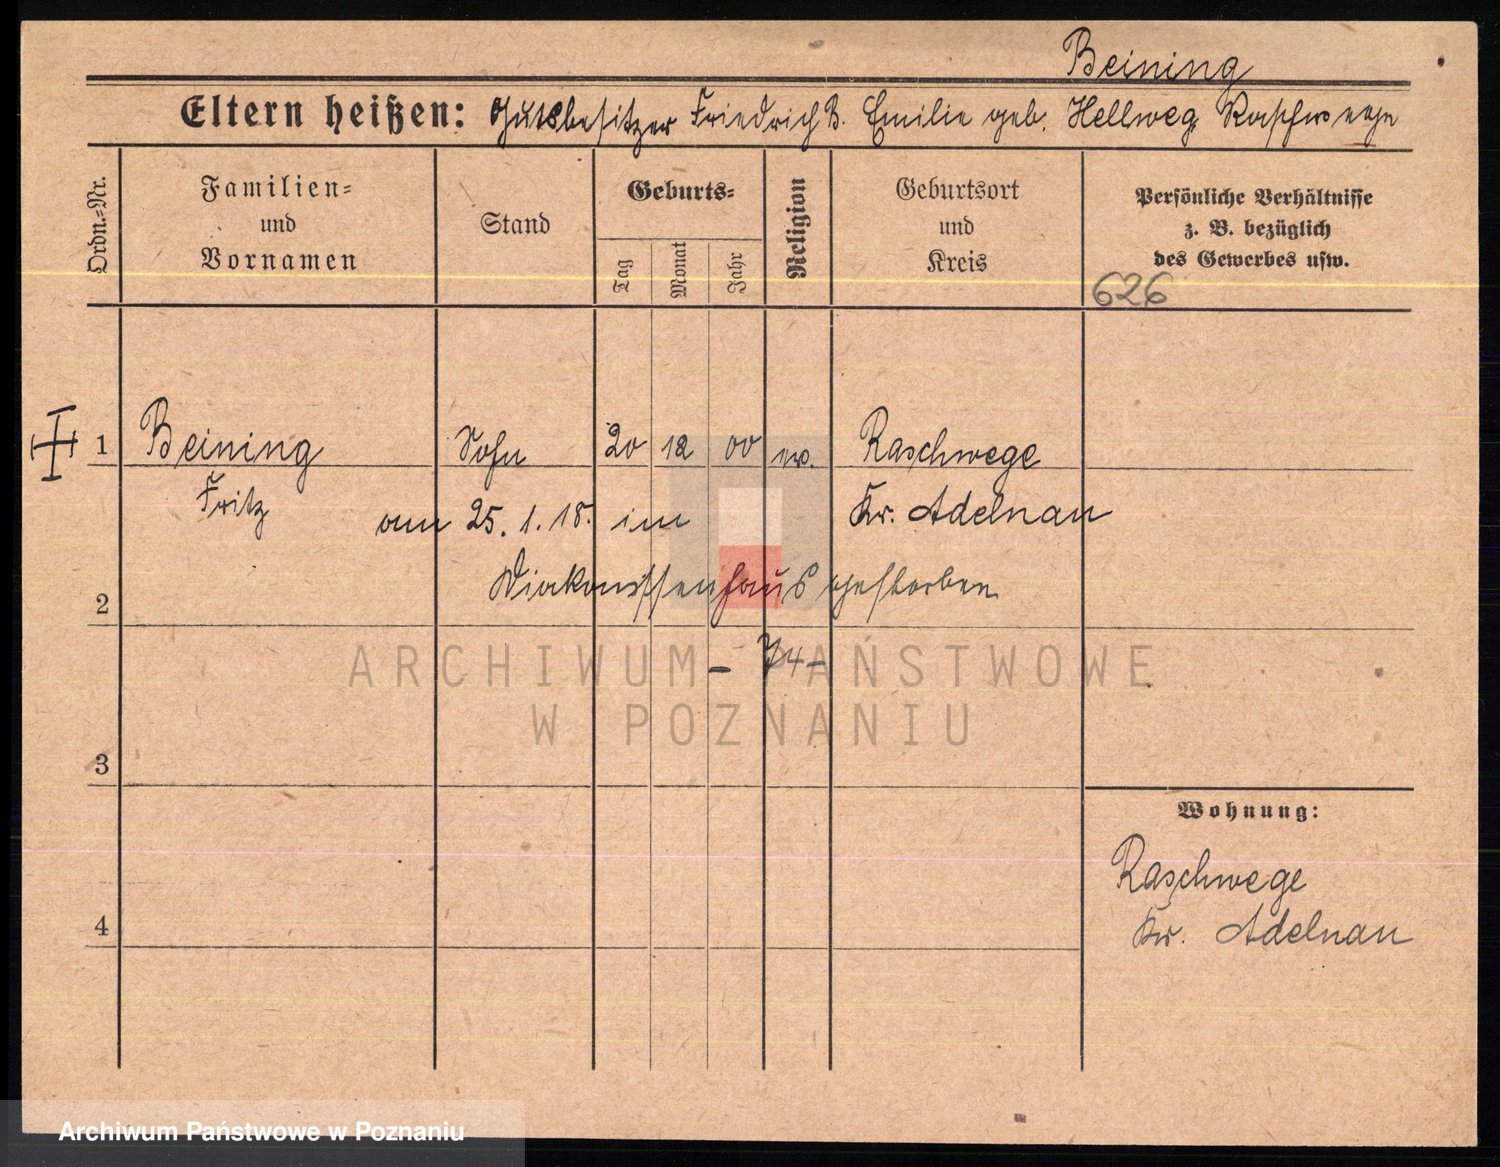 Beining
Eltern heißen: Gutsbesitzer Friedrich B. Emilie geb. Hellweg Raschwege
Ordn.=Nr.
Familien=
und
Vornamen
Stand
Geburts=
Tag
Monat
Jahr
Religion
Geburtsort
und
Kreis
Persönliche Verhältnisse
z. B. bezüglich
des Gewerbes usw.
626
1 Beining Sohn 20 12 00 ev. Raschwege
Fritz am 25. 1. 18. im Kr. Adelnau
Diakonissenhaus gestorben
2
– 74 –
ARCHIWUM PAŃSTWOWE
W POZNANIU
3
Wohnung:
Raschwege
Kr. Adelnau
4
Archiwum Państwowe w Poznaniu